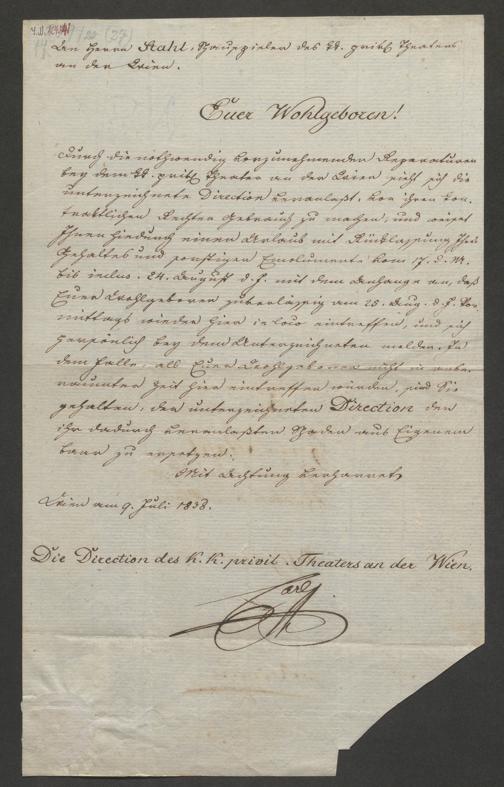 (27)
Den Herrn Stahl, Schauspieler des kk. privil. Theaters
an der Wien.
Euer Wohlgeboren!
Durch die nothwendig vorzunehmenden Reparaturen
bey dem kk. privil. Theater an der Wien sieht sich die
unterzeichnete Direction veranlaßt, von ihren kon-
traktlichen Rechten Gebrauch zu machen, und weiset
Ihnen hiedurch einen Urlaub mit Rücklassung Ihres
Gehaltes und sonstigen Emolumente vom 17. d. M.
bis inclus. 24. August d. J. mit dem Anhange an, daß
Euer Wohlgeboren zuverlässig am 25. Aug. d. J. Vor-
mittags wieder hier in loco eintreffen, und sich
persönlich bey dem Unterzeichneten melden. In
dem Falle, als Euer Wohlgeboren nicht in anbe-
raumter Zeit hier eintreffen würden, sind Sie
gehalten, der unterzeichneten Direction den
ihr dadurch veranlaßten Schaden aus Eigenem
baar zu ersetzen.
Mit Achtung verharret
Wien am 9. Juli 1838.
Die Direction des K. K. privil. Theaters an der Wien.
Carl